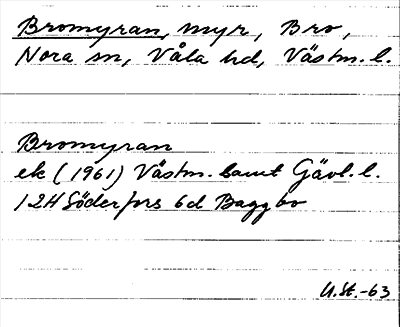 Bromyran, myr, Bro,
Nora sn, Våla hd, Västm. l.
Bromyran
ek (1961) Västm. samt Gävl. l.
12H Söderfors 6d Baggbo
U.St.-63